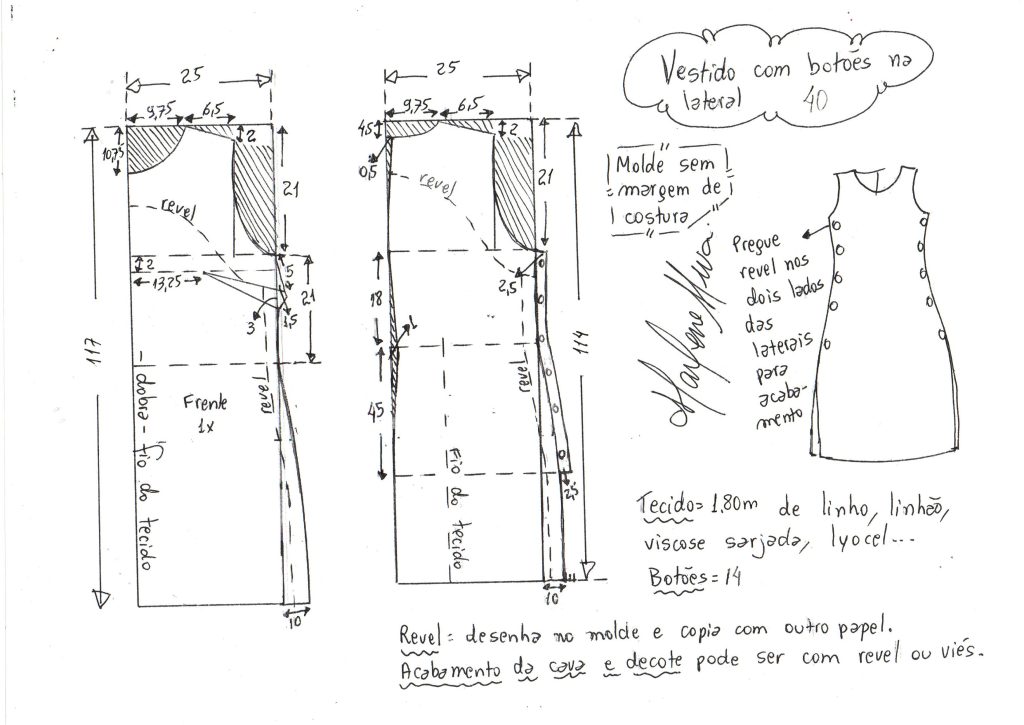 Vestido com botões na
lateral 40
Molde sem
margem de
costura
25
9,75 6,5
2
10,75
21
revel
2
13,25
5
21
1,5
3
117
revel
Frente
1x
dobra - fio do tecido
10
25
9,75 6,5
4,5
2
0,5
revel
21
2,5
18
1
114
revel
45
Fio do tecido
2,5
10
Pregue
revel nos
dois lados
das
laterais
para
acaba-
mento
Tecido= 1.80m de linho, linhão,
viscose sarjada, lyocel...
Botões = 14
Revel = desenha no molde e copia com outro papel.
Acabamento da cava e decote pode ser com revel ou viés.